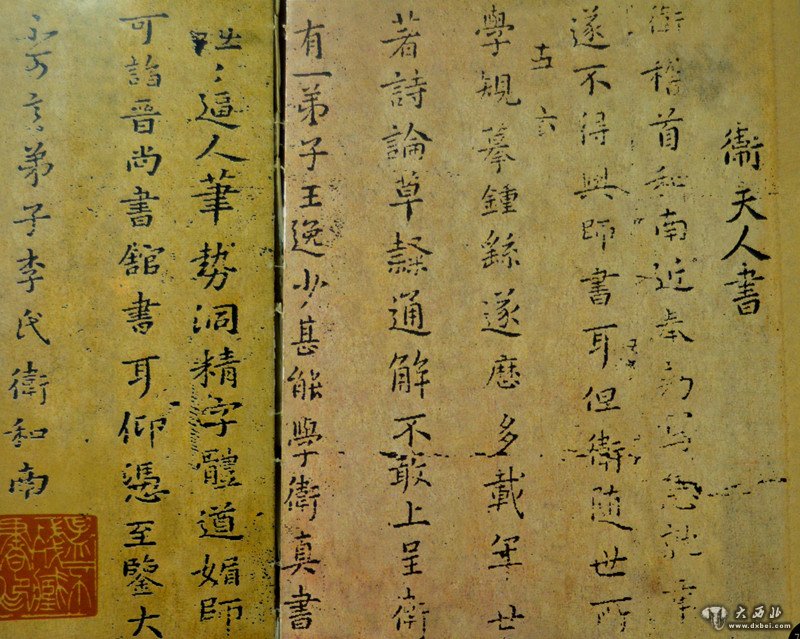 衛夫人書
衛稽首和南近奉勑寫急就章
遂不得與師書耳但衛隨世所
學規摹鍾繇遂歷多載年廿
著詩論草隸通解不敢上呈衛
有一弟子王逸少甚能學衛真書
咄〻逼人筆勢洞精字體遒媚師
可詣晉尚書館書耳仰憑至鑒大
不可言弟子李氏衛和南
大西北
www.dxbei.com